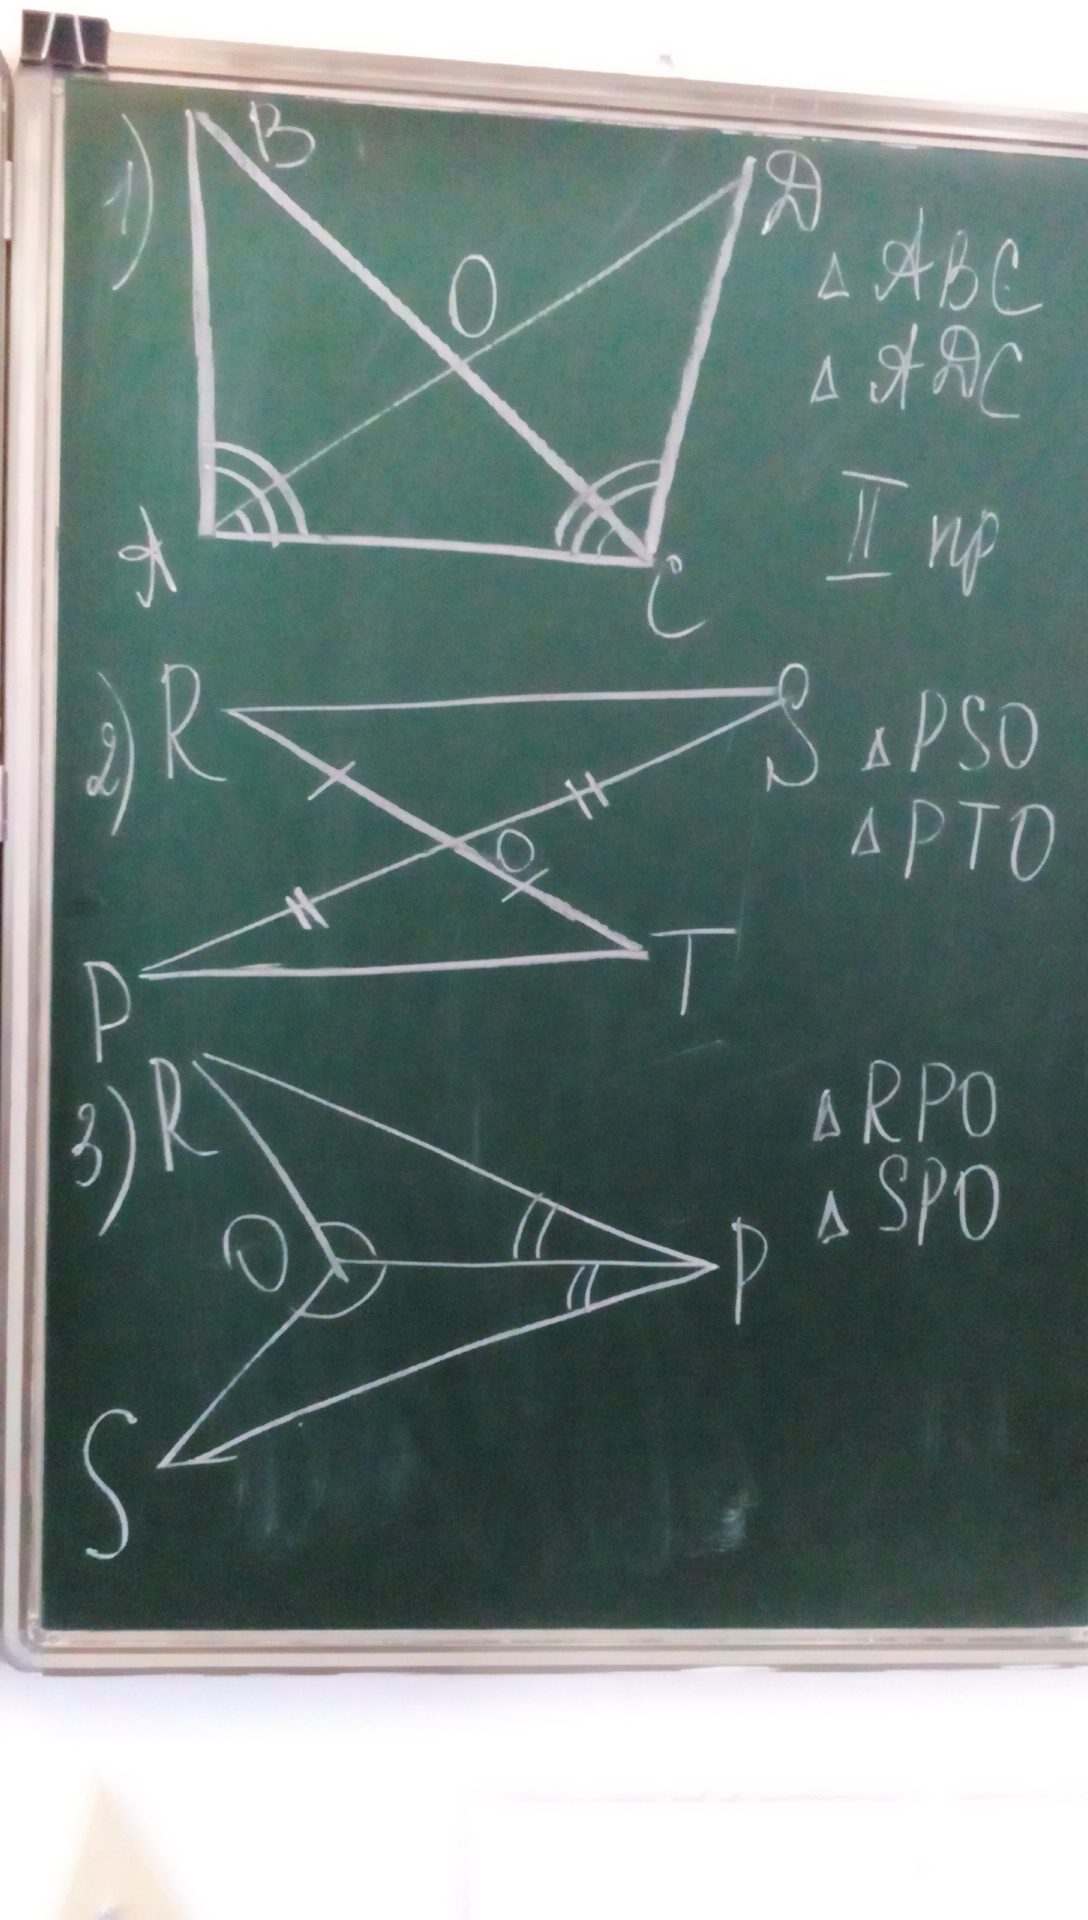 1) B D
O
A C
△ ABC
△ ADC
II пр
2) R S
O
P T
△ PSO
△ PTO
3) R
O P
S
△ RPO
△ SPO